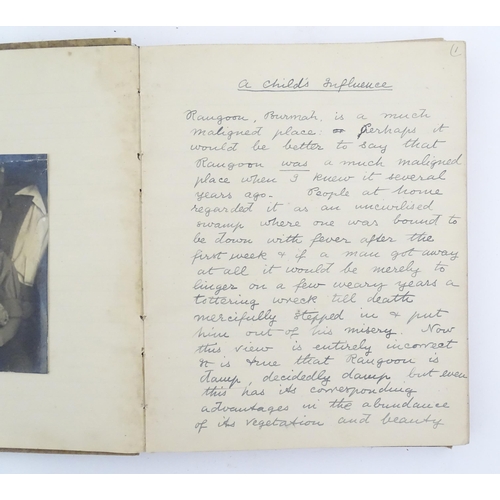 (1
A Child's Influence
Rangoon, Burmah, is a much
maligned place: Perhaps it
would be better to say that
Rangoon was a much maligned
place when I knew it several
years ago. People at home
regarded it as an uncivilised
swamp where one was bound to
be down with fever after the
first week & if a man got away
at all it would be merely to
linger on a few weary years a
tottering wreck till death
mercifully stepped in & put
him out of his misery. Now
this view is entirely incorrect
It is true that Rangoon is
damp, decidedly damp but even
this has its corresponding
advantages in the abundance
of its vegetation and beauty